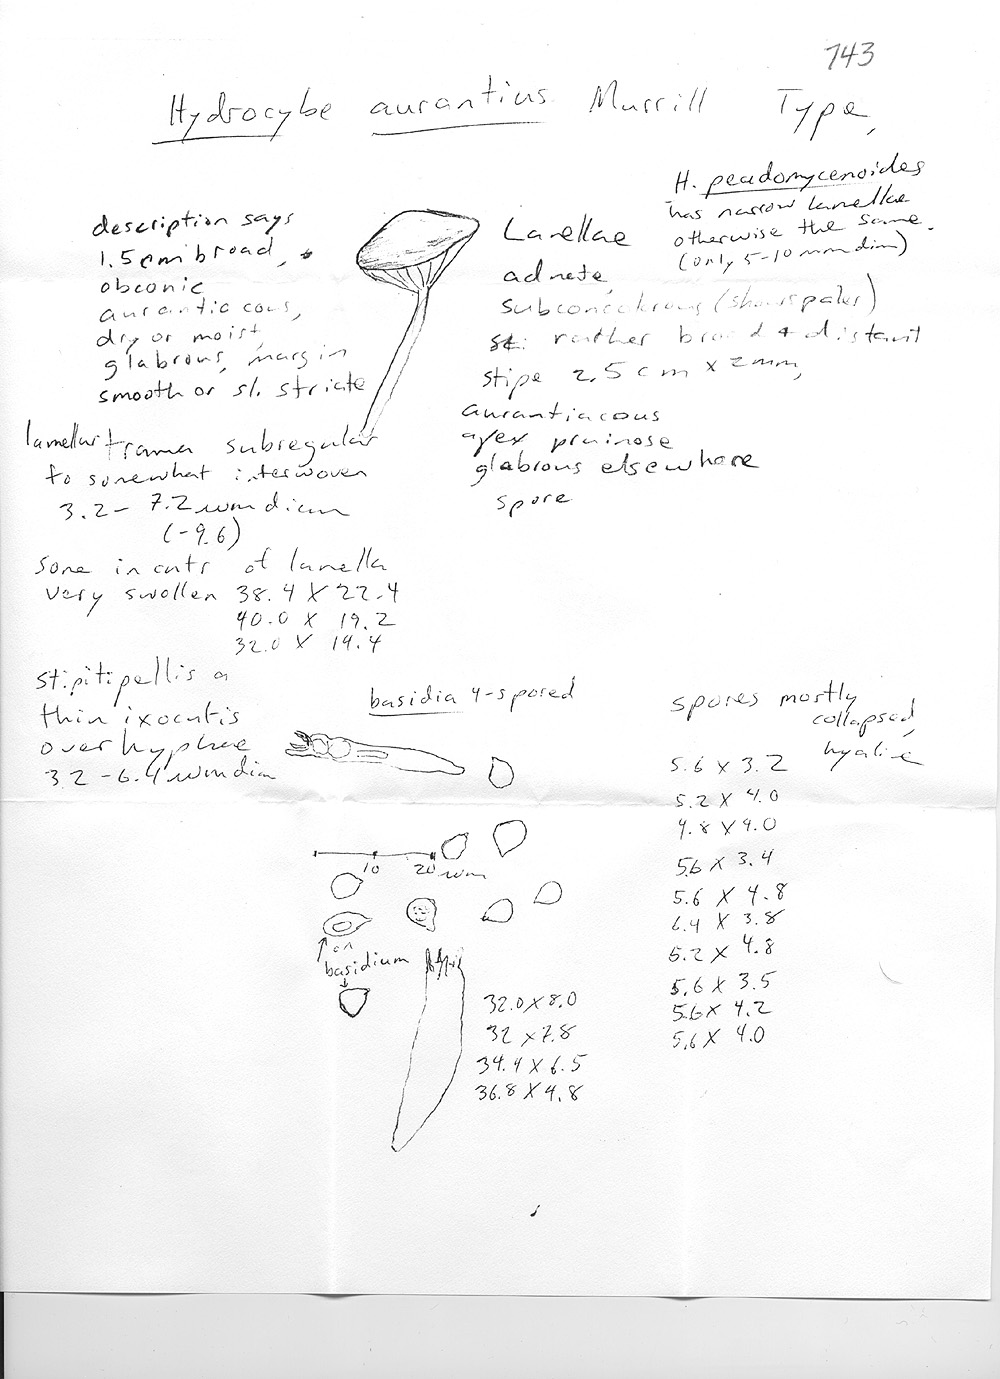 743
Hydrocybe aurantius Murrill Type,
H. peudomycenoides
has narrow lamellae
otherwise the same.
(only 5-10 mm dim)
description says
1.5 cm broad,
obconic
aurantiacous,
dry or moist,
glabrous, margin
smooth or sl. striate
Lamellae
adnate,
subconcolorous (shows paler)
rather broad & distant
stipe 2.5 cm x 2mm,
aurantiacous
apex pruinose
glabrous elsewhere
spore
lamellar trama subregular
to somewhat interwoven
3.2 - 7.2 um diam
(-9.6)
some in cntr of lamella
very swollen 38.4 X 22.4
40.0 X 19.2
32.0 X 14.4
stipitipellis a
thin ixocutis
over hyphae
3.2 - 6.4 um diam
basidia 4-spored
10 20 um
↑ on
basidium
↓
32.0 X 8.0
32 x 7.8
34.4 X 6.5
36.8 X 4.8
spores mostly
collapsed,
hyaline
5.6 x 3.2
5.2 x 4.0
4.8 x 4.0
5.6 x 3.4
5.6 x 4.8
6.4 X 3.8
5.2 x 4.8
5.6 X 3.5
5.6 x 4.2
5.6 X 4.0